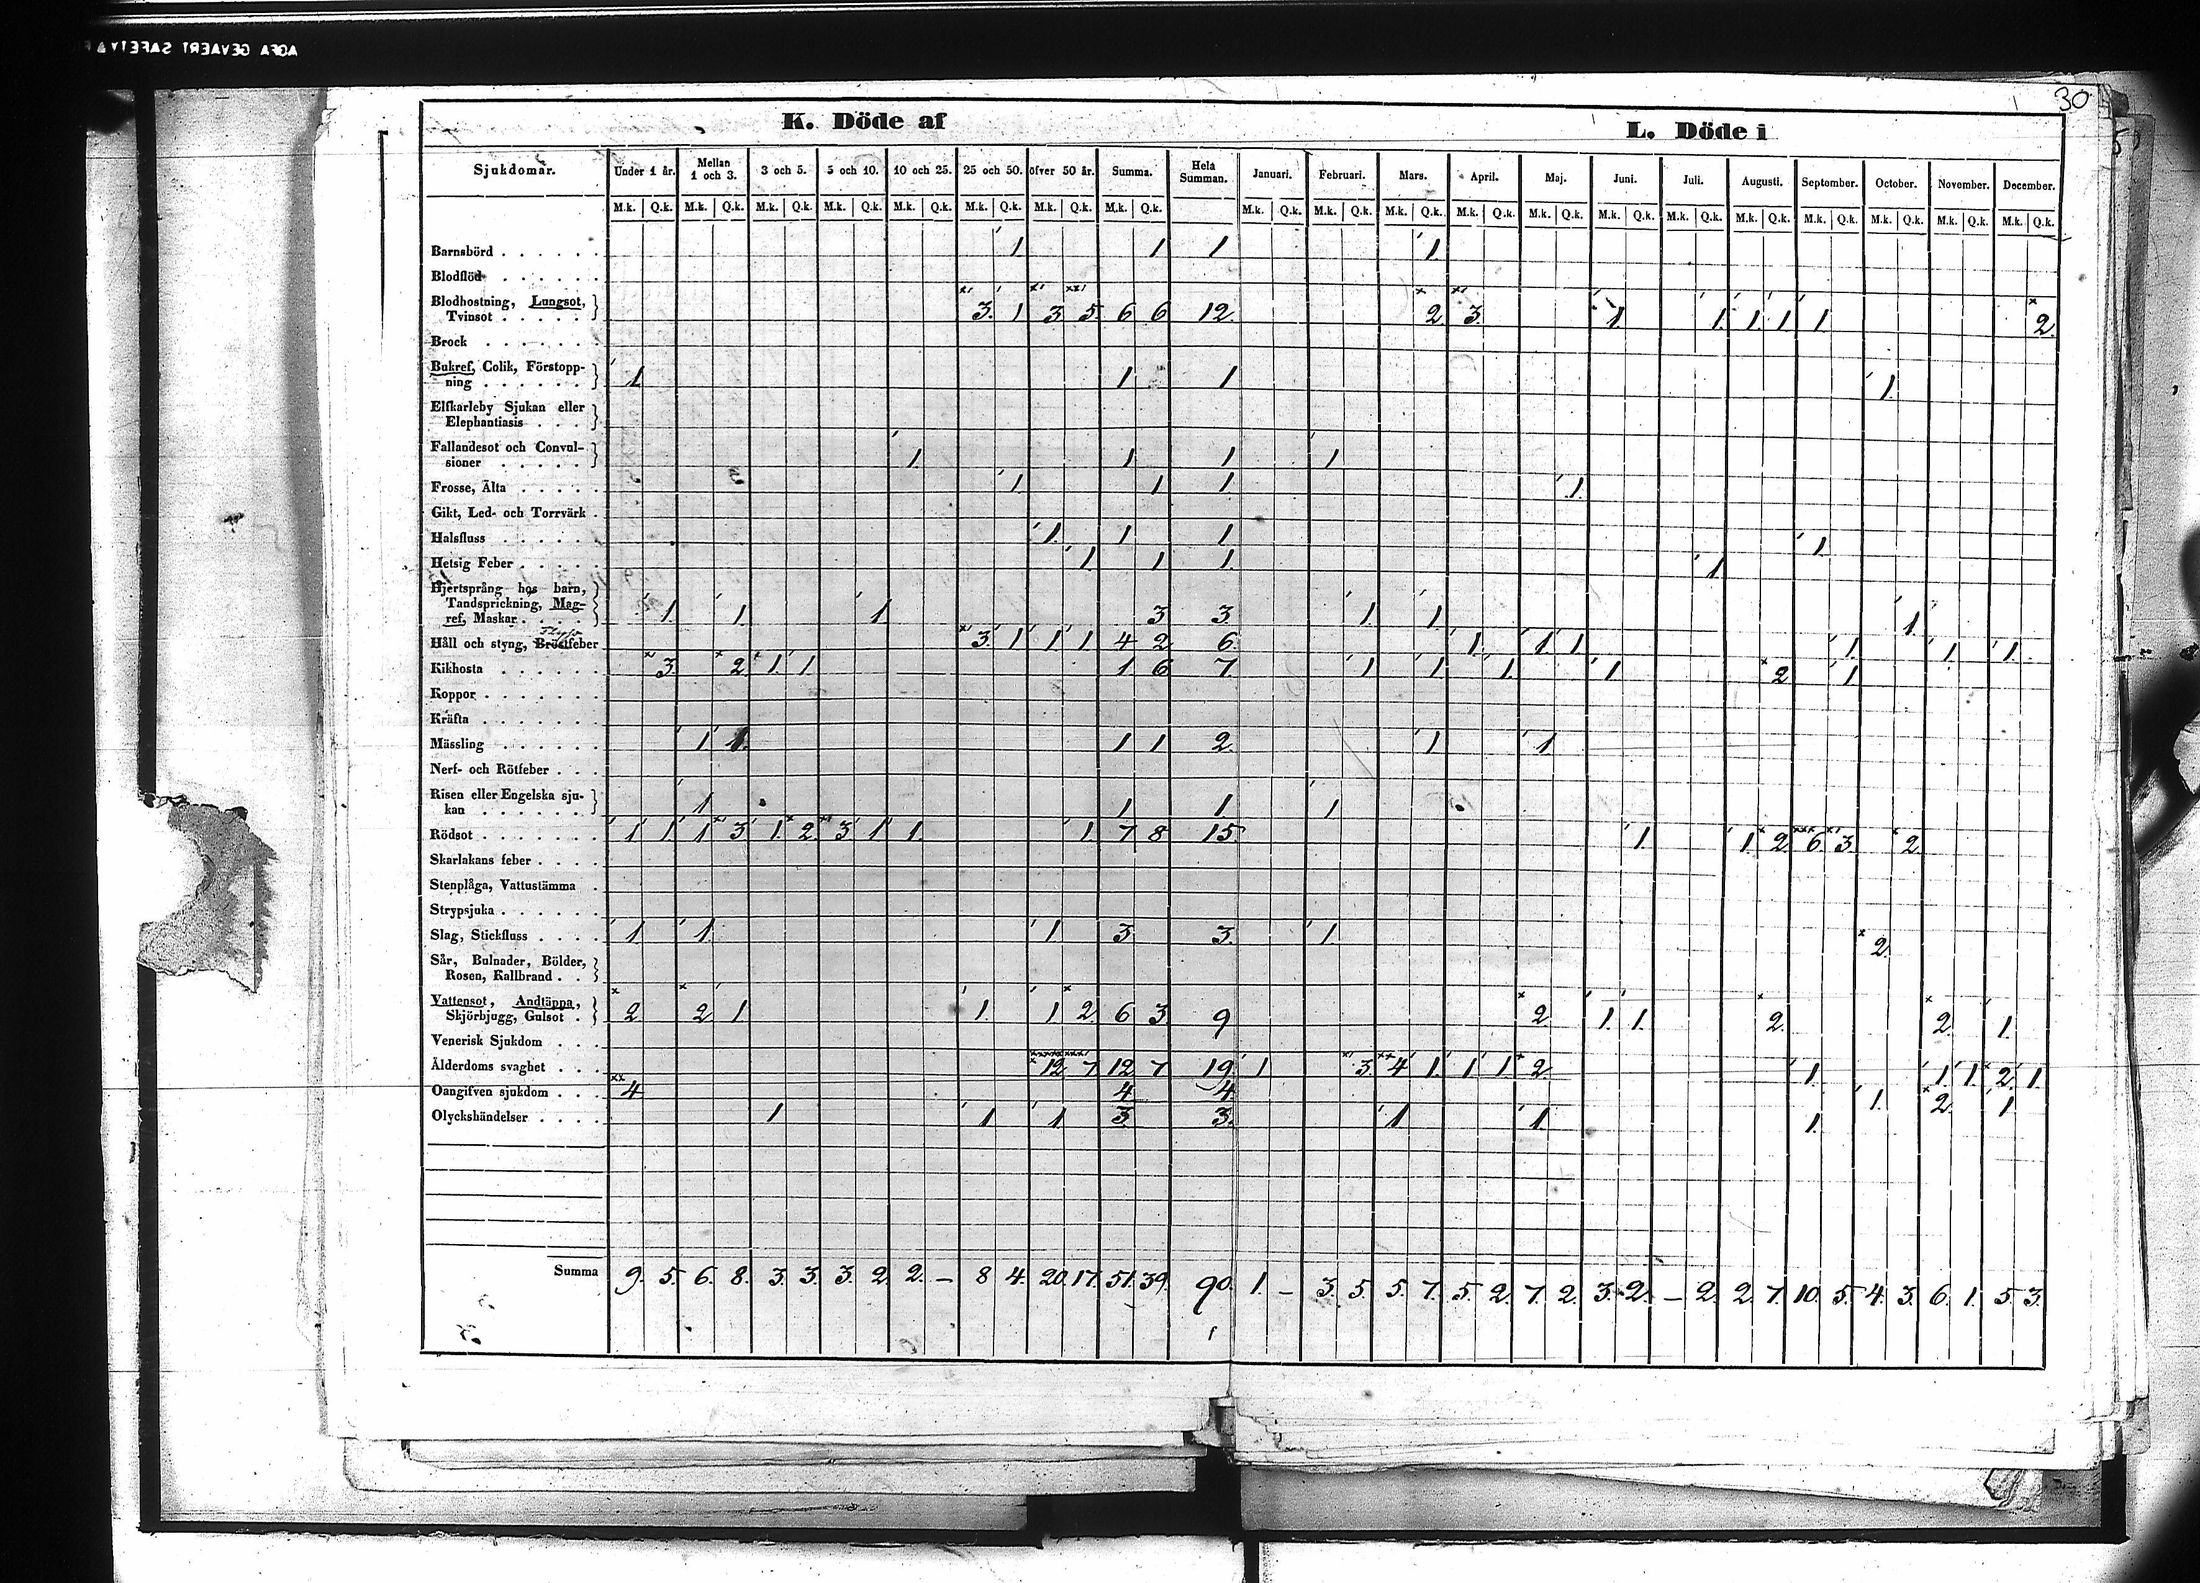 AGFA GEVAERT SAFETY
30
K. Döde af
L. Döde i
Sjukdomar. Under 1 år. Mellan 1 och 3. 3 och 5. 5 och 10. 10 och 25. 25 och 50. öfver 50 år. Summa. Hela Summan. Januari. Februari. Mars. April. Maj. Juni. Juli. Augusti. September. October. November. December.
M.k. Q.k. M.k. Q.k. M.k. Q.k. M.k. Q.k. M.k. Q.k. M.k. Q.k. M.k. Q.k. M.k. Q.k. M.k. Q.k. M.k. Q.k. M.k. Q.k. M.k. Q.k. M.k. Q.k. M.k. Q.k. M.k. Q.k. M.k. Q.k. M.k. Q.k. M.k. Q.k. M.k. Q.k. M.k. Q.k.
Barnsbörd . . . . . . 1 1 1 1
Blodflöd . . . . . .
Blodhostning, Lungsot,
Tvinsot . . . . . 3. 1 3 5. 6 6 12. 2. 3. 1. 1. 1 1 1 2.
Brock . . . . . .
Bukref, Colik, Förstopp-
ning . . . . . . 1. 1 1 1.
Elfkarleby Sjukan eller
Elephantiasis . . .
Fallandesot och Convul-
sioner . . . . . 1. 1 1 1.
Frosse, Älta . . . . . 1. 1 1. 1.
Gikt, Led- och Torrvärk .
Halsfluss . . . . . . 1. 1 1 1.
Hetsig Feber . . . . . 1 1 1. 1.
Hjertsprång hos barn,
Tandsprickning, Mag-
ref, Maskar . . . . 1. 1. 1 3 3. 1. 1. 1.
Håll och styng, Bröstfeber 3. 1 1 1 4 2 6. 1. 1 1 1. 1. 1.
Kikhosta . . . . . . 3. 2. 1. 1 1 6 7. 1. 1 1. 1 2. 1.
Koppor . . . . . . .
Kräfta . . . . . . .
Mässling . . . . . . 1 1. 1 1 2. 1 1
Nerf- och Rötfeber . . .
Risen eller Engelska sju-
kan . . . . . . 1 1 1 1
Rödsot . . . . . . . 1 1. 1 3 1. 2 3 1 1. 1. 7 8 15. 1. 1. 2. 6. 3. 2.
Skarlakans feber . . . .
Stenplåga, Vattustämma .
Strypsjuka . . . . . .
Slag, Stickfluss . . . . 1 1. 1 3 3. 1. 2.
Sår, Bulnader, Bölder,
Rosen, Kallbrand . .
Vattensot, Andtäppa,
Skjörbjugg, Gulsot . 2. 2 1 1. 1 2. 6 3 9 2. 1. 1. 2. 2. 1.
Venerisk Sjukdom . . .
Ålderdoms svaghet . . . 12 7 12 7 19. 1 3. 4 1. 1 1. 2. 1. 1. 1. 2. 1.
Oangifven sjukdom . . . 4 4 4. 1. 2. 1
Olyckshändelser . . . . 1 1 1 3 3. 1 1. 1.
Summa 9. 5. 6. 8. 3. 3. 3. 2. 2. — 8 4. 20. 17. 51. 39. 90. 1. — 3. 5. 5. 7. 5. 2. 7. 2. 3. 2. — 2. 2. 7. 10. 5. 4. 3. 6. 1. 5. 3.